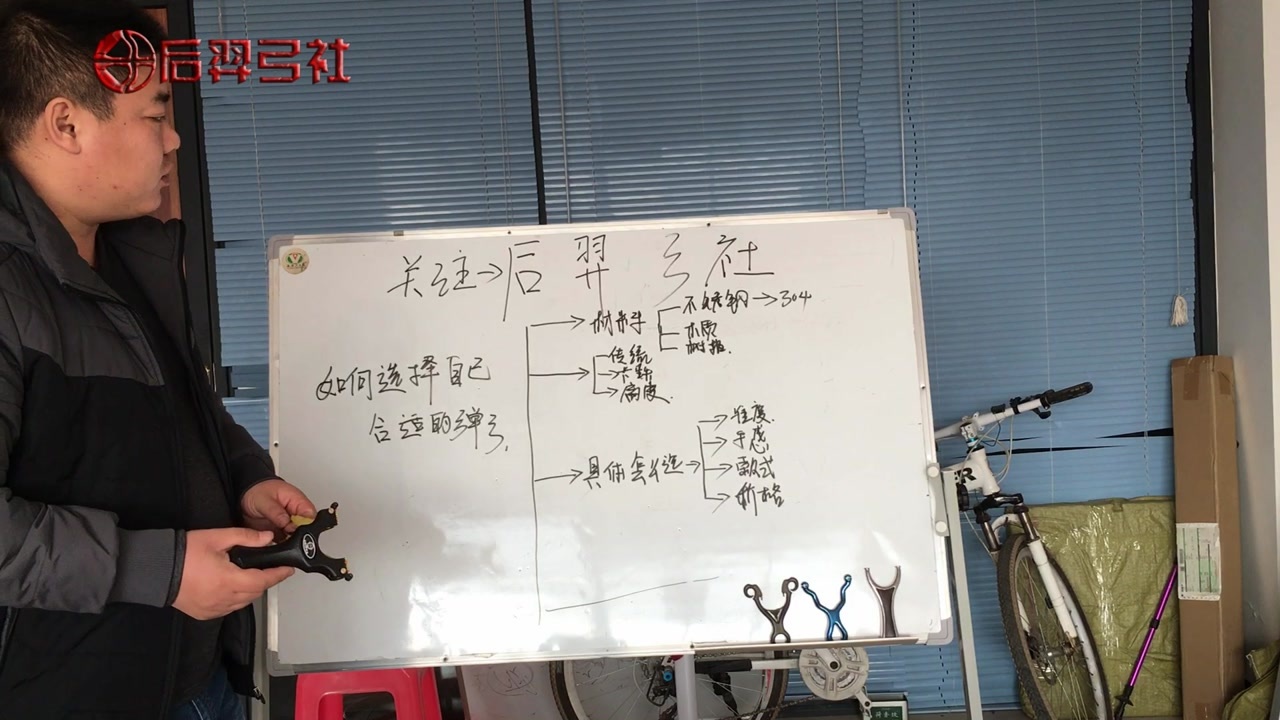 后羿弓社
关注→后羿弓社
如何选择自己
合适的弹弓
材料
不锈钢→304
木质
树指
传统
卡球
扁皮
具体怎么选
准度
手感
款式
价格